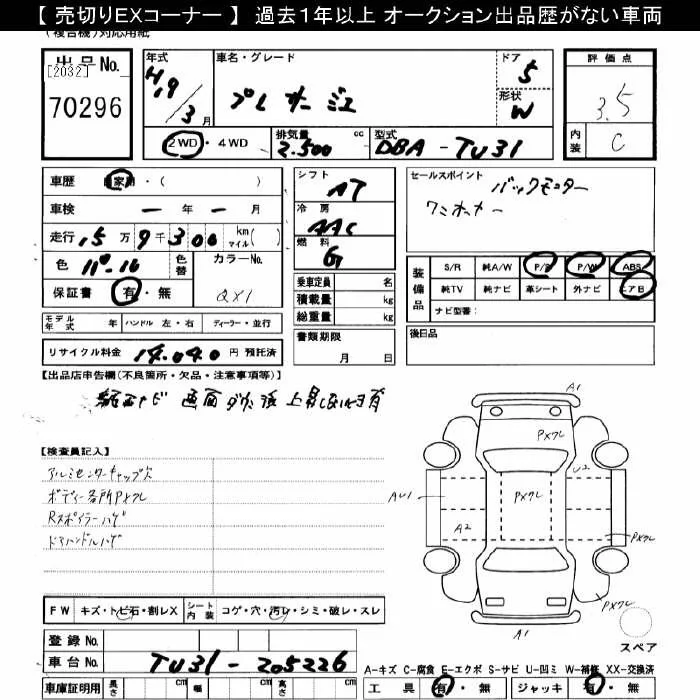 【 売切りEXコーナー 】 過去1年以上 オークション出品歴がない車両
(複合機)対応用紙
出品No.
[2032]
70296
年式 H19/3月
車名・グレード
プレサージュ
ドア 5
形状 W
評価点
3.5
内装 C
2WD・4WD
排気量 2.500 cc
型式 DBA-TU31
車歴 自家用・( )
車検 ー年ー月
走行 15万9千300 km マイル( )
色 色替
カラーNo. QX1
保証書 有・無
モデル年式 年 ハンドル 左・右 ディーラー・並行
リサイクル料金 円 預託済
シフト AT
冷房 AAC
燃料 G
乗車定員 名
積載量 kg
総重量 kg
書類期限
月 日
セールスポイント
バックモニター
ワンオーナー
装備品
S/R 純A/W P/S P/W ABS
純TV 純ナビ 革シート 外ナビ エアB
ナビ型番:
後日品
【出品店申告欄(不良箇所・欠品・注意事項等)】
純正ナビ 画面
【検査員記入】
アルミセンターキャップ欠
ボディー各所PXワレ
Rスポイラーハゲ
ドアハンドルハゲ
FW キズ・トビ石・割レX
シート内装 コゲ・穴・汚レ・シミ・破レ・スレ
登録 No.
車台 No. TU31-205226
車庫証明用 長さ cm 幅 cm 高さ cm
A1
PXワレ
U2
AU1
PXワレ
A2
PXワレ
PXワレ
A1
スペア
A-キズ C-腐食 E-エクボ S-サビ U-凹ミ W-補修 XX-交換済
工具 有・無 ジャッキ 有・無